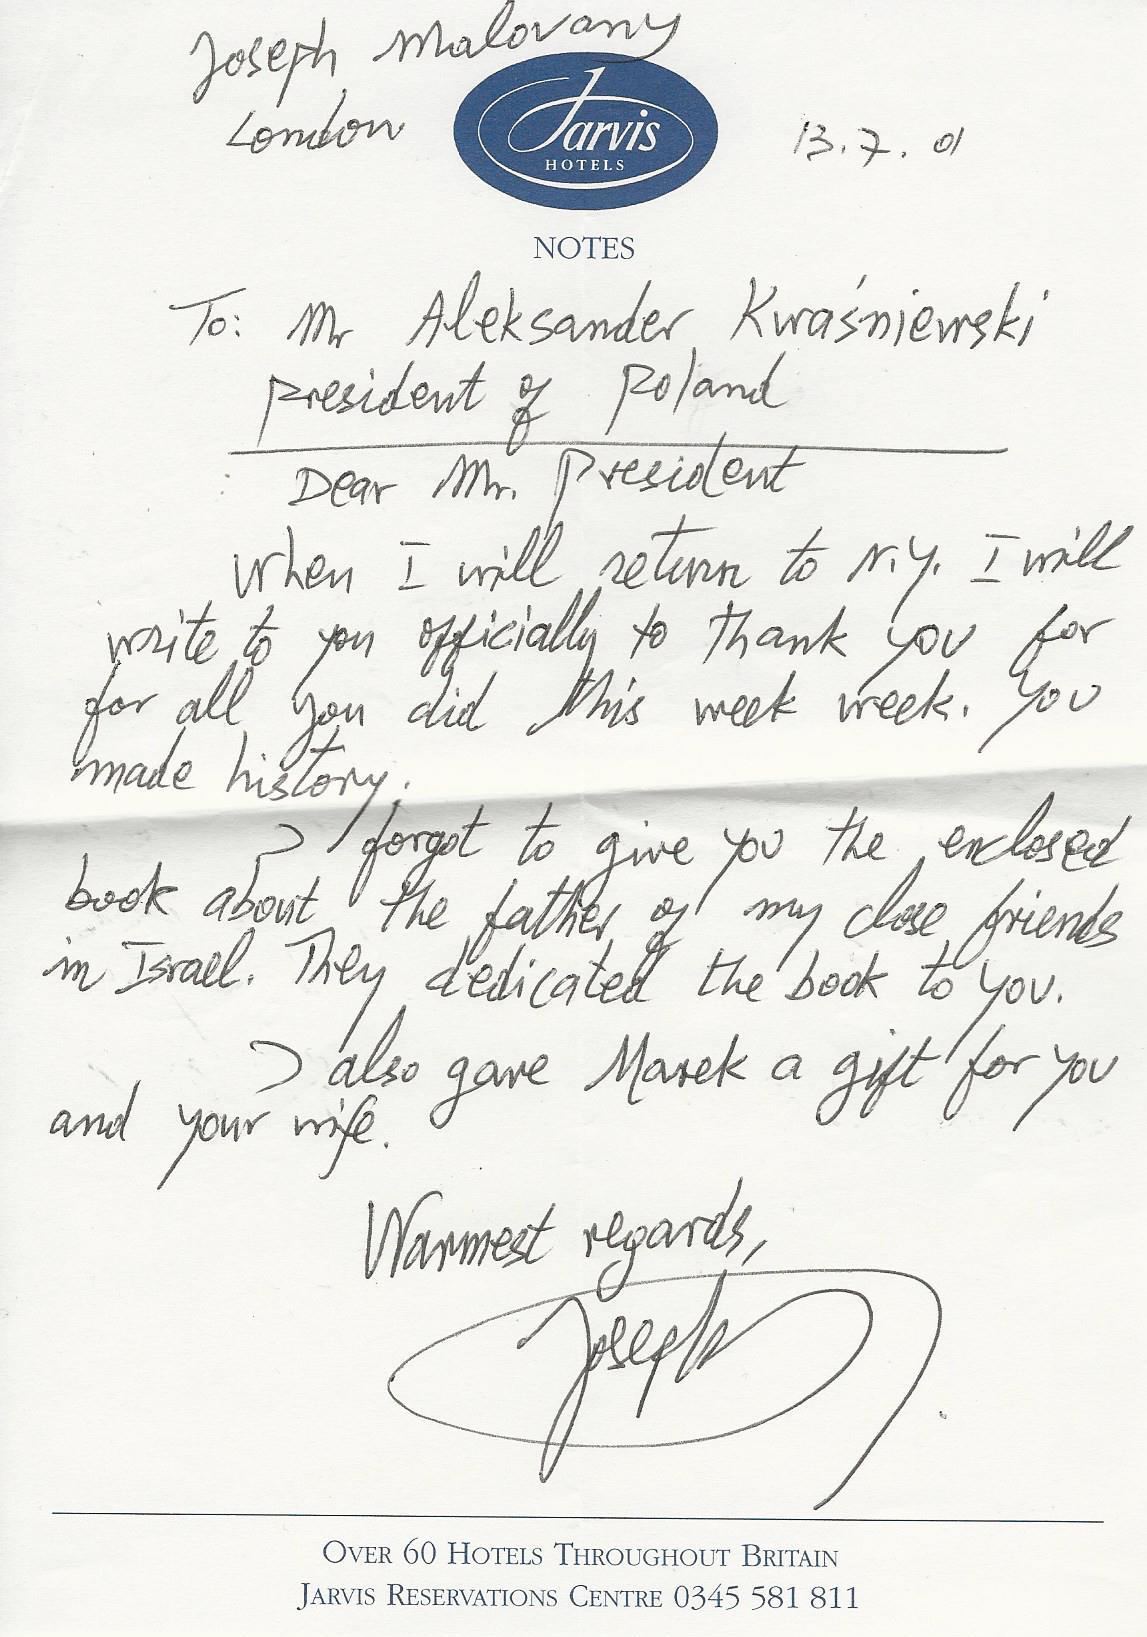 Joseph Malovany
London
13.7.01
Jarvis
HOTELS
NOTES
To: Mr Aleksander Kwaśniewski
President of Poland
Dear Mr. President
When I will return to N.Y. I will
write to you officially to thank you for
for all you did this week week. You
made history.
I forgot to give you the enclosed
book about the father of my close friends
in Israel. They dedicated the book to you.
I also gave Marek a gift for you
and your wife.
Warmest regards,
Joseph
OVER 60 HOTELS THROUGHOUT BRITAIN
JARVIS RESERVATIONS CENTRE 0345 581 811